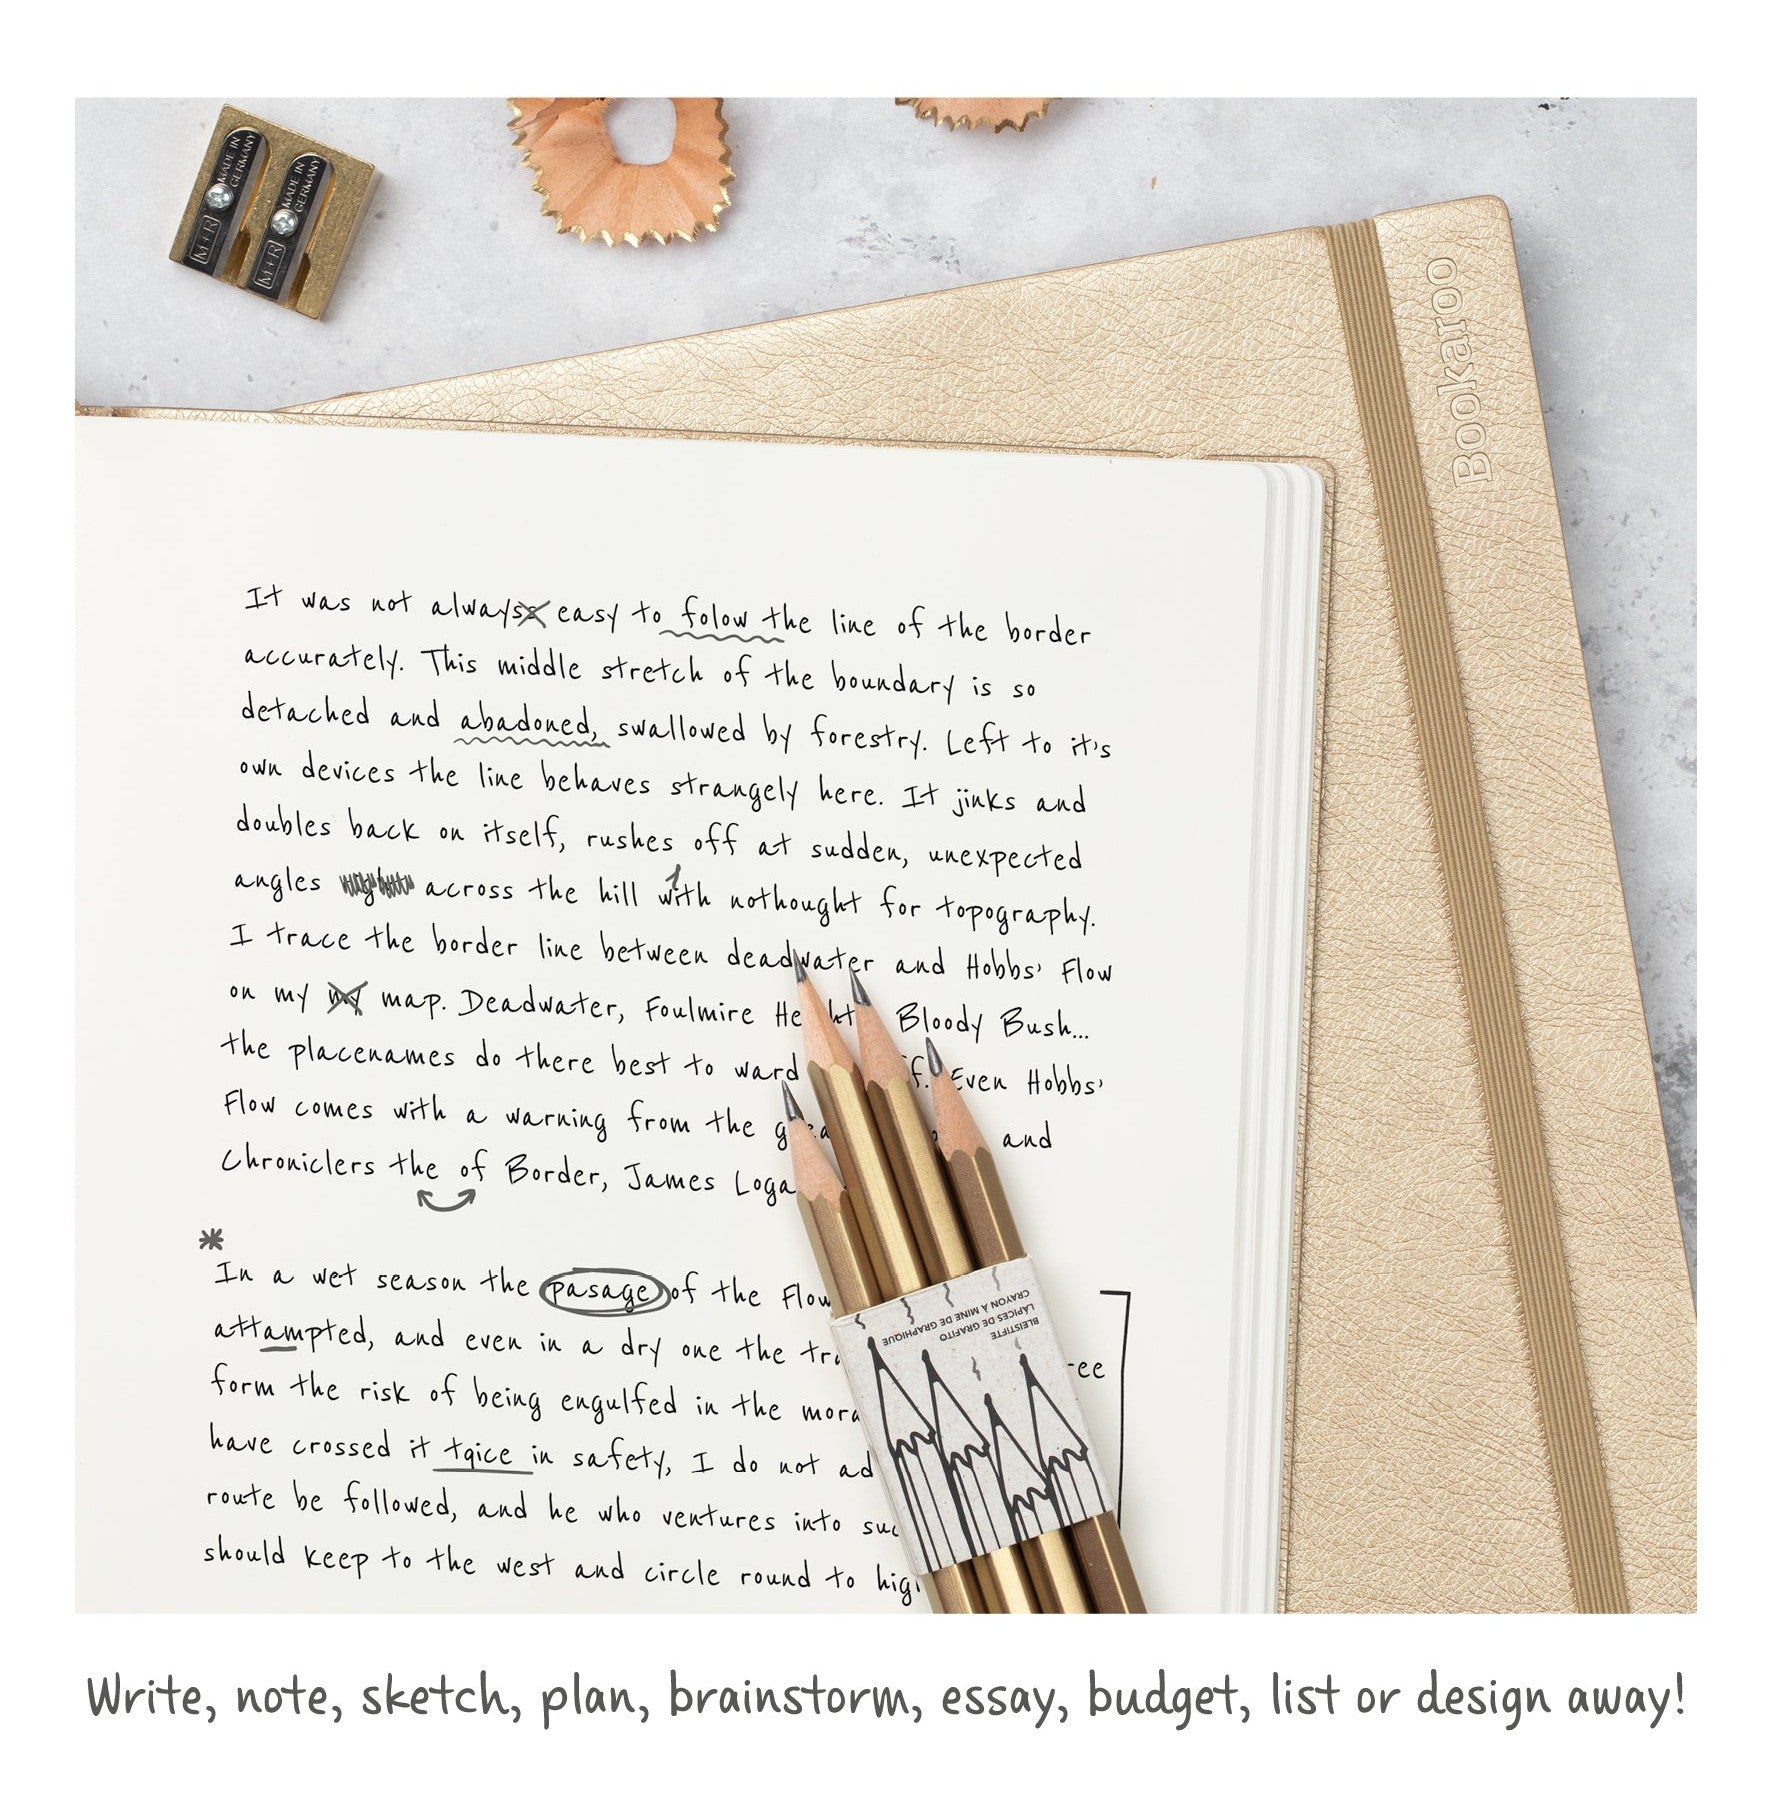 MADE IN GERMANY
M+R
MADE IN GERMANY
M+R
Bookaroo
It was not always easy to folow the line of the border
accurately. This middle stretch of the boundary is so
detached and abadoned, swallowed by forestry. Left to it's
own devices the line behaves strangely here. It jinks and
doubles back on itself, rushes off at sudden, unexpected
angles across the hill with nothought for topography.
I trace the border line between deadwater and Hobbs' Flow
on my my map. Deadwater, Foulmire Bloody Bush...
the placenames do there best to ward Even Hobbs'
Flow comes with a warning from the and
Chroniclers the of Border, James
*
In a wet season the pasage of the
attampted, and even in a dry one the
form the risk of being engulfed in the
have crossed it tqice in safety, I do not
route be followed, and he who ventures into
should keep to the west and circle round to
BLEISTIFTE
LÁPICES DE GRAFITO
CRAYON À MINE DE GRAPHIQUE
Write, note, sketch, plan, brainstorm, essay, budget, list or design away!